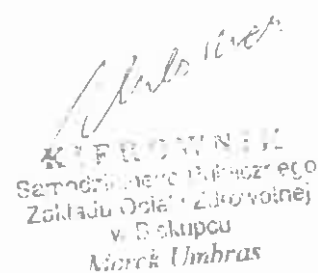 KIEROWNIK
Samodzielnego Publicznego
Zakładu Opieki Zdrowotnej
w Biskupcu
Marek Umbras